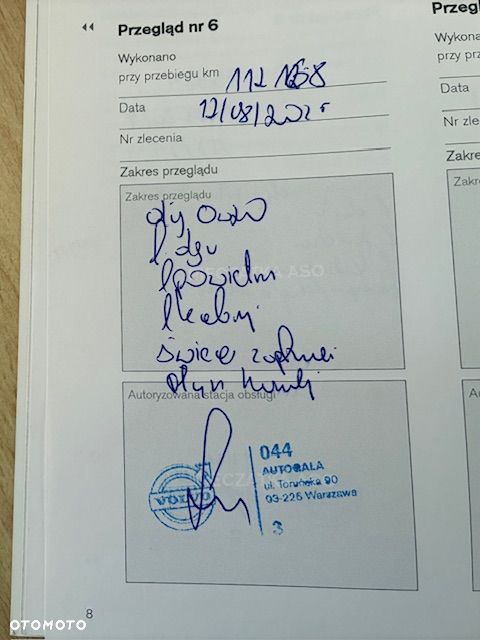 Przegląd nr 6
Wykonano
przy przebiegu km 112 168
Data 12/08/2025
Nr zlecenia
Zakres przeglądu
Zakres przeglądu
olej 0W20
f. oleju
f powietrza
f kabiny
świece zapłonowe
płyn hamulc
Autoryzowana stacja obsługi
VOLVO
044
AUTOBALA
ul. Toruńska 90
03-226 Warszawa
3
8
OTOMOTO
Przegl
Wykona
przy prz
Data
Nr zle
Zakre
Zakr